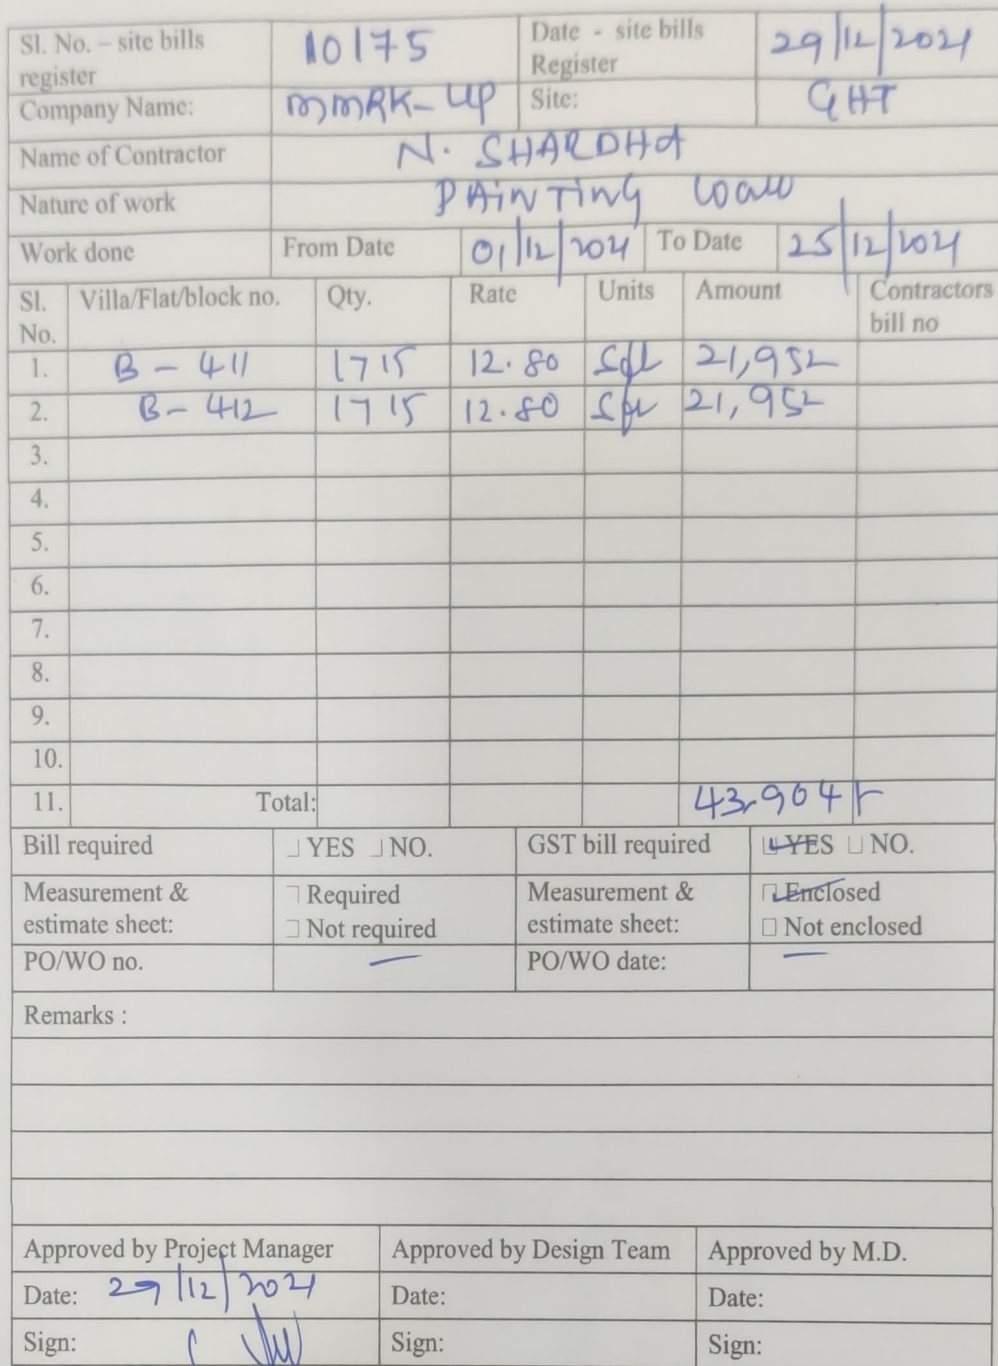 Sl. No. – site bills register 10175 Date - site bills Register 29/12/2021
Company Name: MMRK-UP Site: GHT
Name of Contractor N. SHARDHA
Nature of work PAINTING
Work done From Date 01/12/2021 To Date 25/12/2021
Sl. No. Villa/Flat/block no. Qty. Rate Units Amount Contractors bill no
1. B - 411 1715 12.80 Sft 21,952
2. B - 412 1715 12.80 Sft 21,952
3.
4.
5.
6.
7.
8.
9.
10.
11. Total: 43,904/-
Bill required YES NO. GST bill required YES NO.
Measurement & estimate sheet: Required Not required Measurement & estimate sheet: Enclosed Not enclosed
PO/WO no. — PO/WO date: —
Remarks :
Approved by Project Manager Approved by Design Team Approved by M.D.
Date: 29/12/2021 Date: Date:
Sign: Sign: Sign: